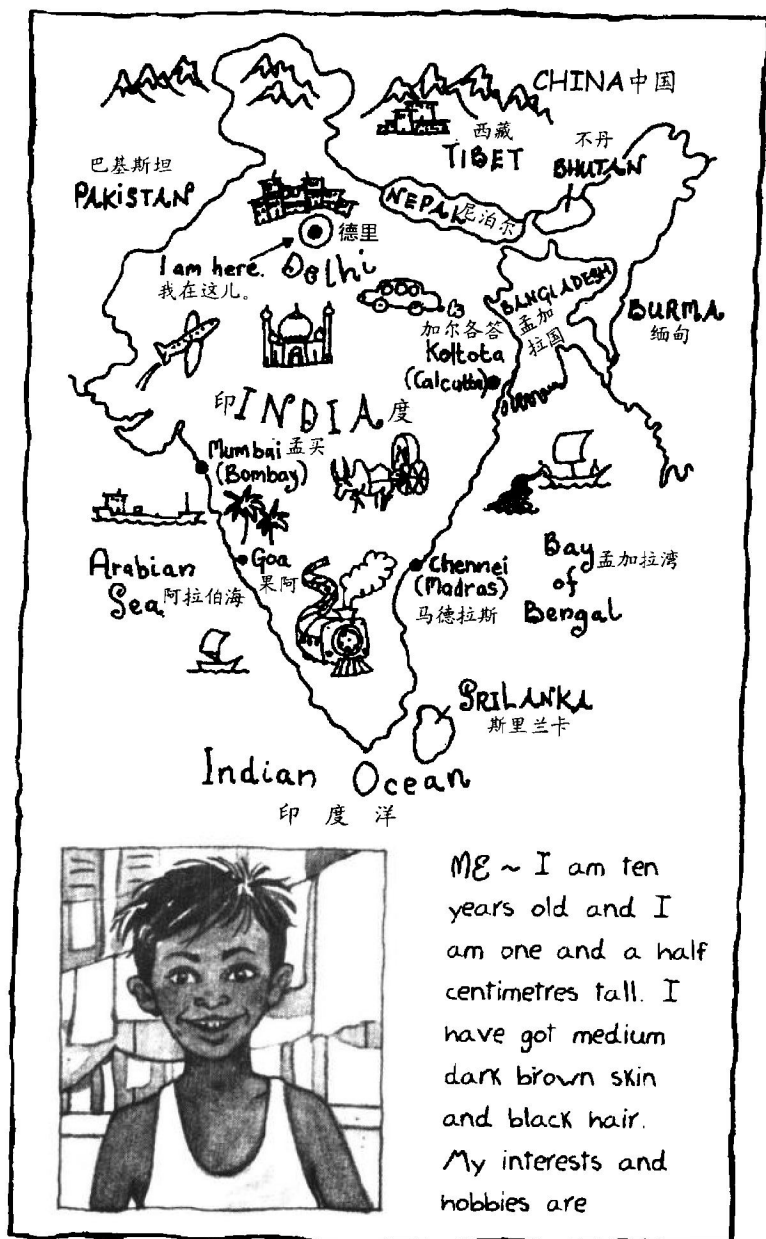 CHINA中国
西藏
TIBET
不丹
BHUTAN
巴基斯坦
PAKISTAN
NEPAK尼泊尔
德里
I am here.
我在这儿。
Delhi
BANGLADESH
孟加
拉国
BURMA
缅甸
加尔各答
Koltota
(Calcutta)
印INDIA度
Mumbai孟买
(Bombay)
Goa
果阿
Arabian
Sea阿拉伯海
Chennei
(Madras)
马德拉斯
Bay孟加拉湾
of
Bengal
SRILANKA
斯里兰卡
Indian Ocean
印度洋
ME ~ I am ten
years old and I
am one and a half
centimetres tall. I
have got medium
dark brown skin
and black hair.
My interests and
hobbies are